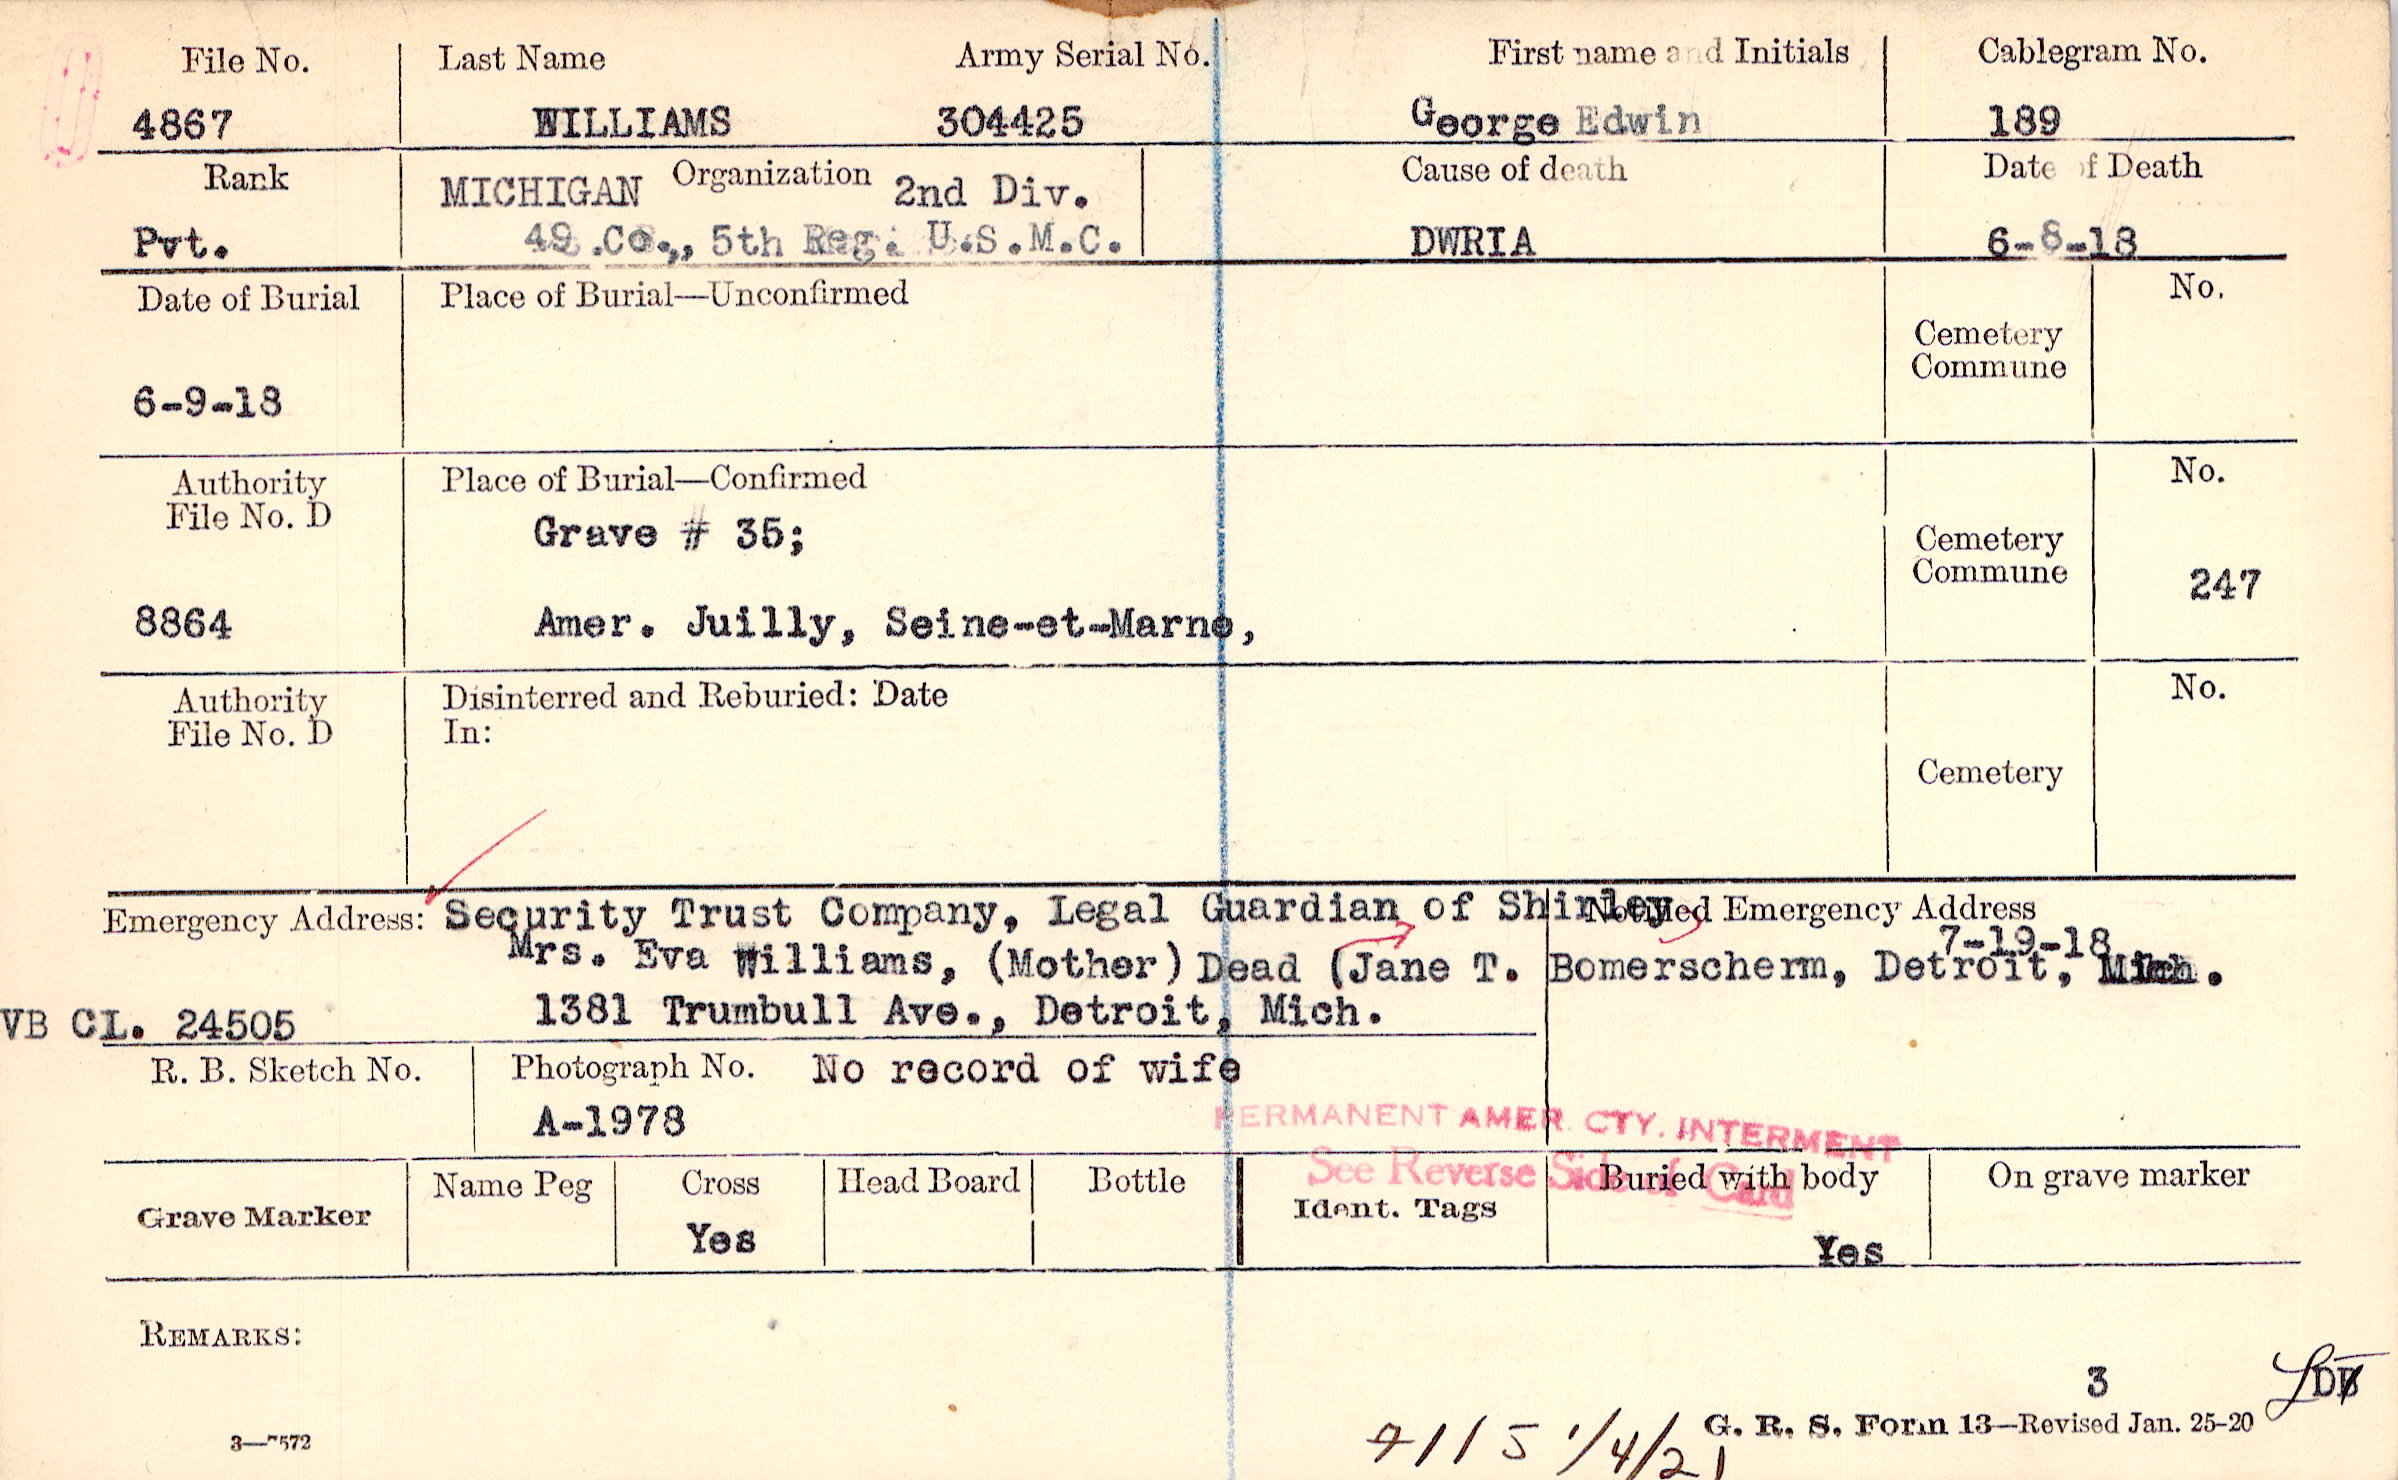 File No. Last Name Army Serial No. First name and Initials Cablegram No.
4867 WILLIAMS 304425 George Edwin 189
Rank MICHIGAN Organization 2nd Div. Cause of death Date of Death
Pvt. 49.Co., 5th Reg. U.S.M.C. DWRIA 6-8-18
Date of Burial Place of Burial—Unconfirmed No.
Cemetery
Commune
6-9-18
Authority Place of Burial—Confirmed No.
File No. D Grave # 35; Cemetery
Commune 247
8864 Amer. Juilly, Seine-et-Marne,
Authority Disinterred and Reburied: Date No.
File No. D In:
Cemetery
Emergency Address: Security Trust Company, Legal Guardian of Shirley Notified Emergency Address
7-19-18
Mrs. Eva Williams, (Mother) Dead (Jane T. Bomerscherm, Detroit, Mich.
VB CL. 24505 1381 Trumbull Ave., Detroit, Mich.
R. B. Sketch No. Photograph No. No record of wife
A-1978
PERMANENT AMER. CTY. INTERMENT
See Reverse Side of Card
Grave Marker Name Peg Cross Head Board Bottle Ident. Tags Buried with body On grave marker
Yes Yes
REMARKS:
3
3—7572 7115 1/4/21 G. R. S. Form 13—Revised Jan. 25-20